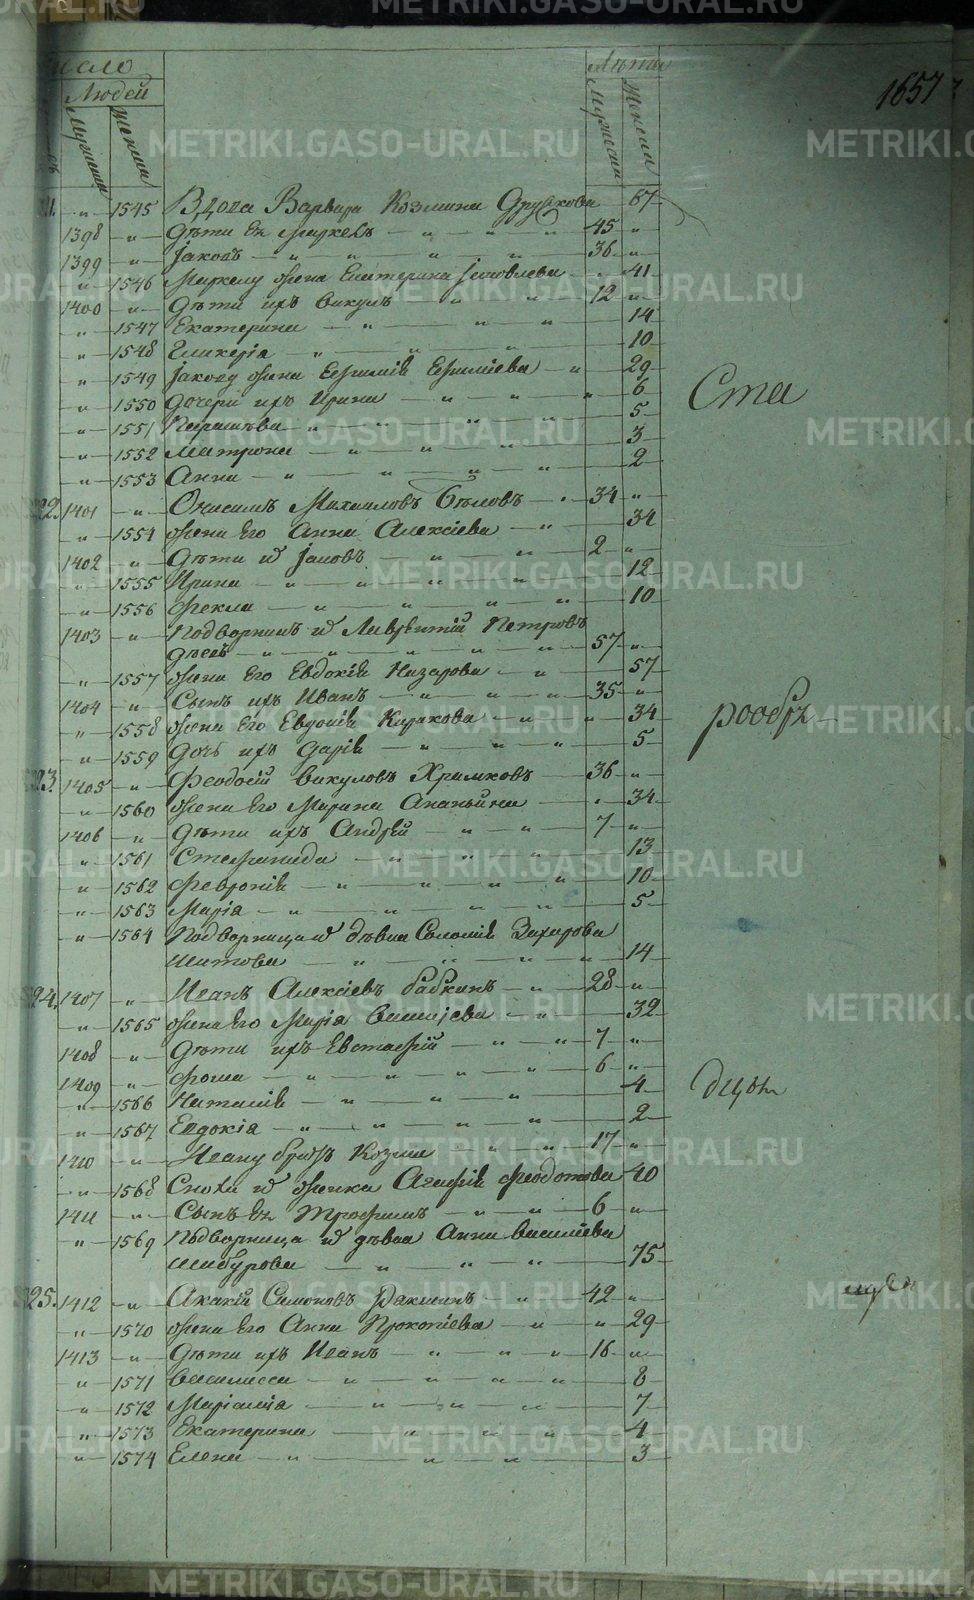 число
Лѣта
1657
Людей
мужеска
женска
мужеска
женска
21. " 1545 Вдова Варвара Козмина 67
1398 " Дѣти ея Маркелъ 45 "
1399 " Іаковъ 36 "
" 1546 Маркелу жена Екатерина Іаковлева " 41
1400 " Дѣти ихъ Викулъ 12 "
" 1547 Екатерина 14
" 1548 Гликерія 10
" 1549 Іакову жена 29
" 1550 Дочери ихъ Ирина " 6
" 1551 Парасъева 5
" 1552 Матрона 3
" 1553 Анна 2
Ста
22. 1401 " Онисимъ Михаиловъ Бѣловъ 34 "
" 1554 жена Его Анна Алексіева 34
1402 " Дѣти и Іаковъ 2 "
" 1555 Ирина 12
" 1556 Фекла 10
1403 " Подворникъ и Лаврентій Петровъ
57 "
" 1557 жена Его Евдокія Назарова 57
1404 " Сынъ ихъ Иванъ 35 "
" 1558 жена Его Евдокія " 34
" 1559 Дочь ихъ Дарія 5
23. 1405 " Феодосій Викуловъ Храмковъ 36 "
" 1560 жена Его Марина Ананьина " 34
1406 " Дѣти ихъ Андрей 7 "
" 1561 Стефанида 13
" 1562 Февронія 10
" 1563 Марія 5
" 1564 Подворница и дѣвка Соломія Захарова
Шитова 14
24. 1407 " Иванъ Алексіевъ Бабкинъ 28 "
" 1565 жена Его Марія 32
1408 " Дѣти ихъ Евстафій 7 "
1409 " Фома 6 "
" 1566 Наталія 4
" 1567 Евдокія 2
1410 " Ивану братъ Козма 17 "
" 1568 Сноха и женка Агафія Феодотова 40
1411 " Сынъ ея Трофимъ 6 "
" 1569 Подворница и дѣвка Анна Василіева
75
25. 1412 " Акакій Симоновъ 42 "
" 1570 жена Его Анна Прокопіева " 29
1413 " Дѣти ихъ Иванъ 16 "
" 1571 Василисса 8
" 1572 Маріамія 7
" 1573 Екатерина 4
" 1574 Елена 3
METRIKI.GASO-URAL.RU